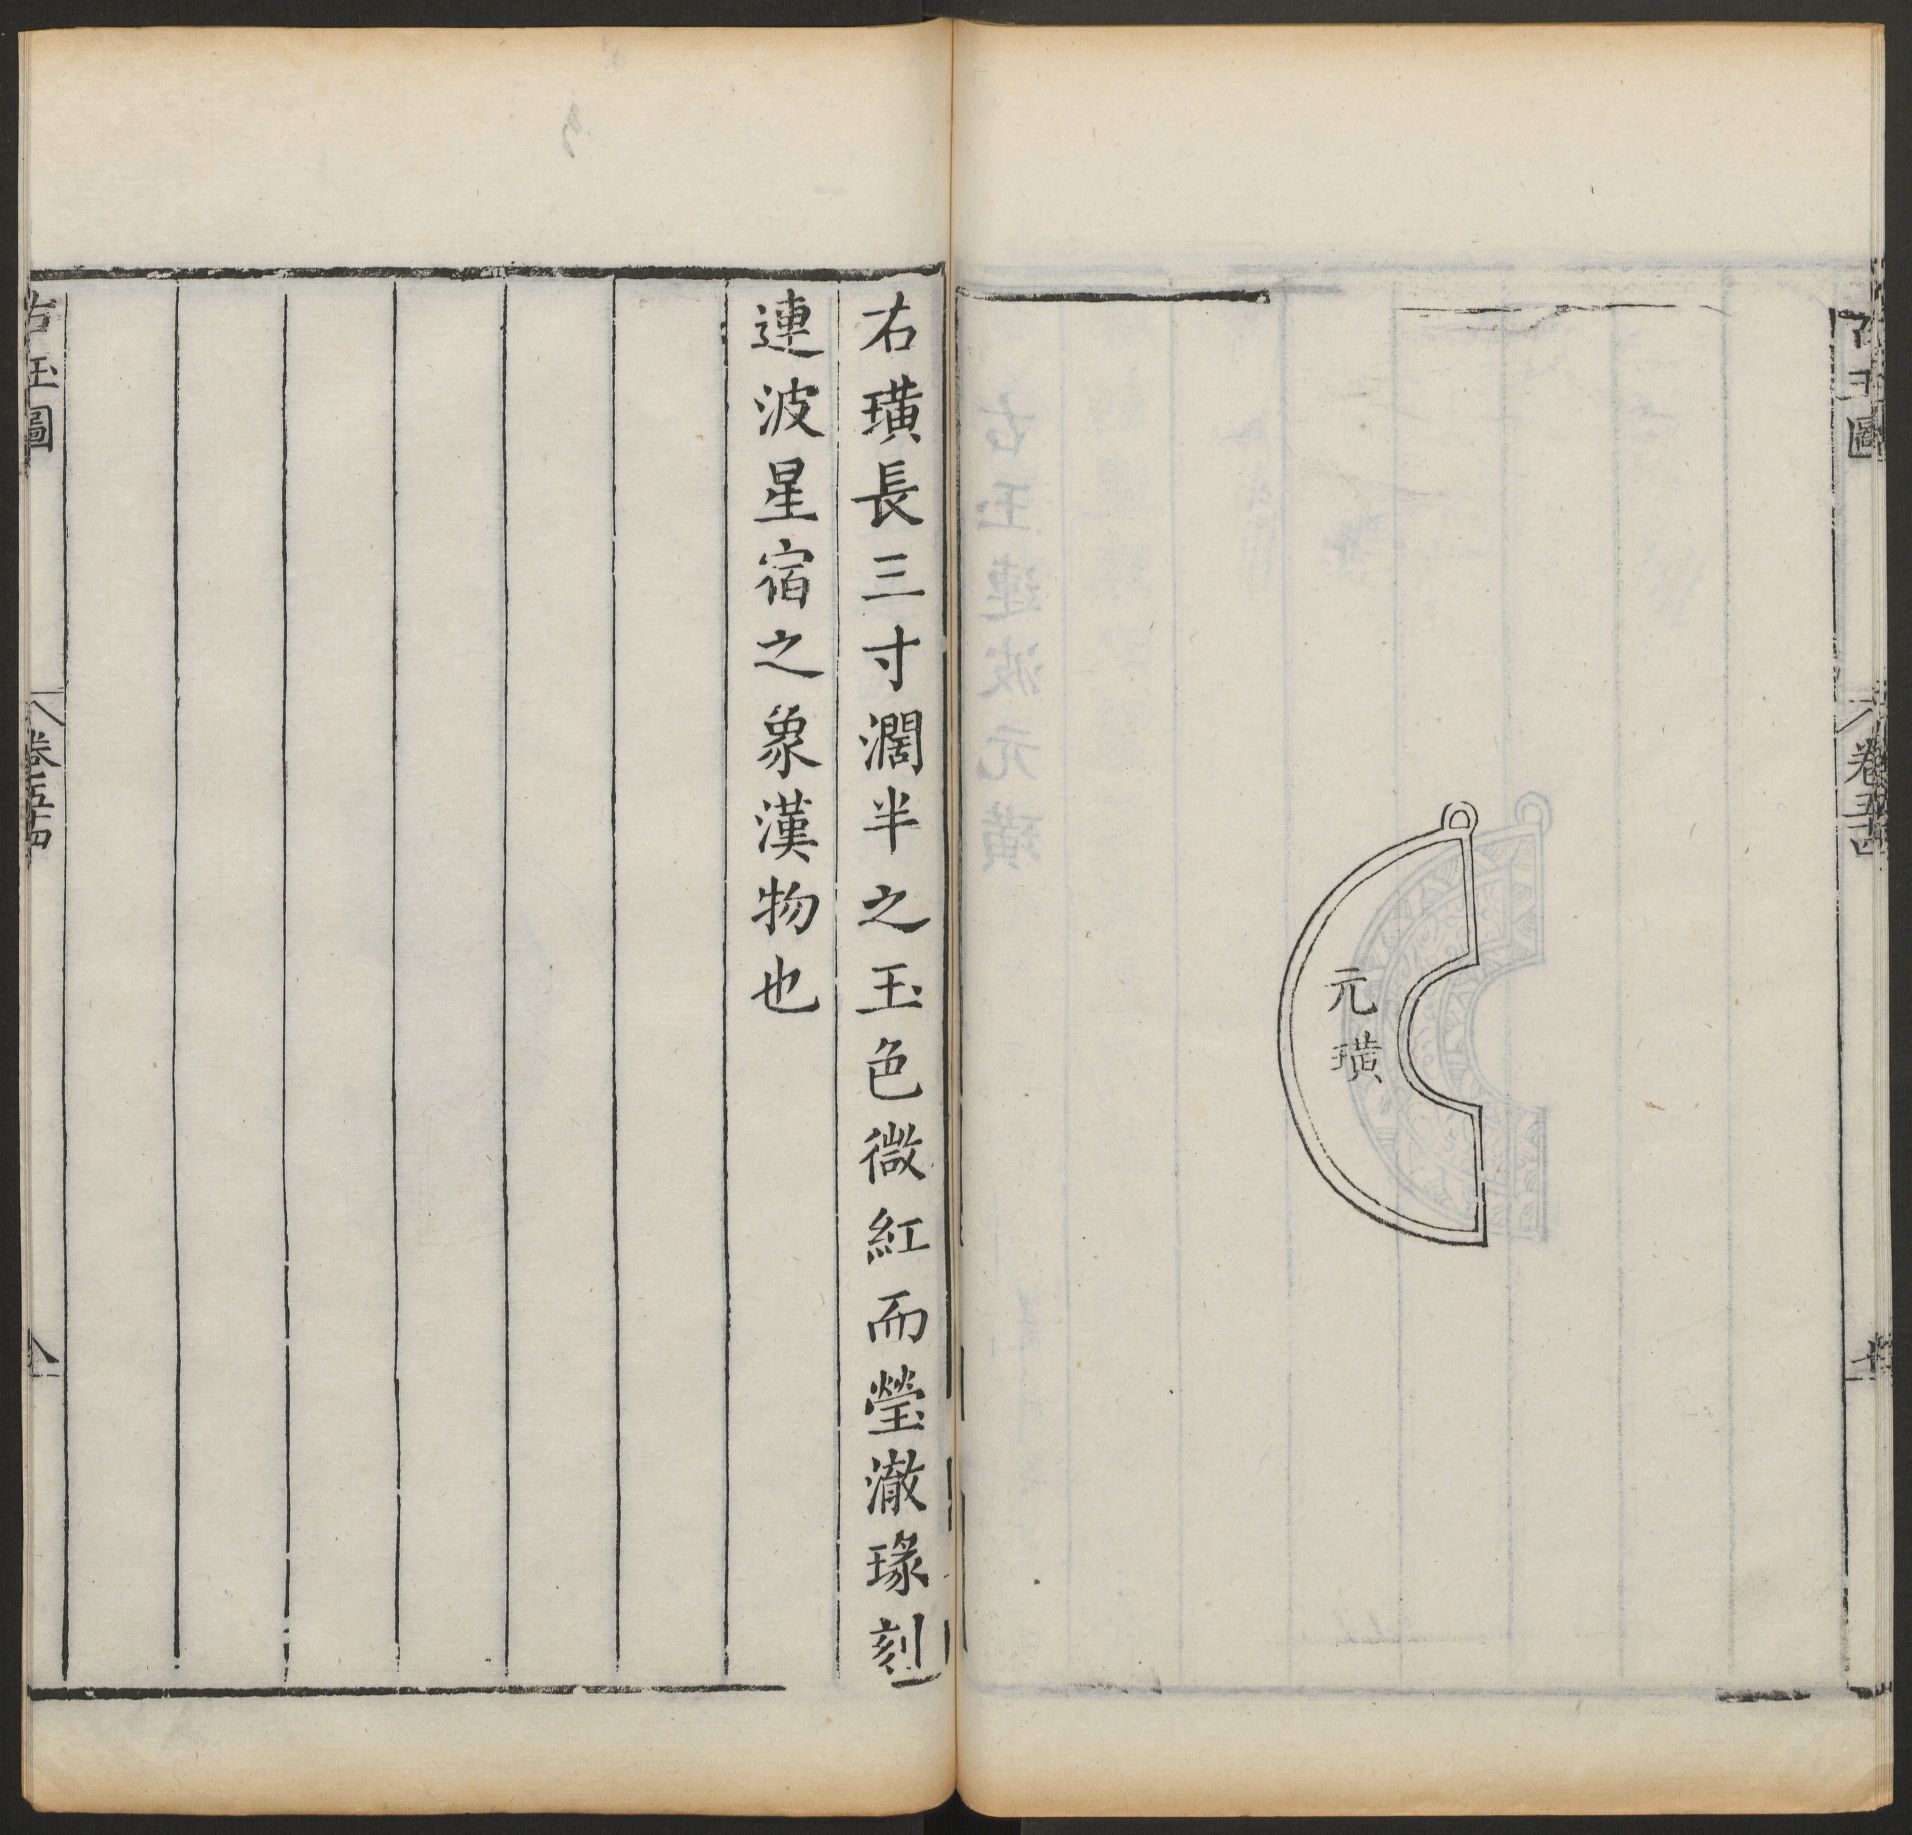 古玉圖
卷五十四
元璜
右璜長三寸濶半之玉色微紅而瑩澈瑑刻
連波星宿之象漢物也
古玉圖
卷五十四